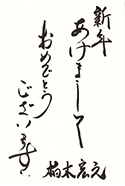 新年
あけまして
おめでとう
ございます
柏木宏元